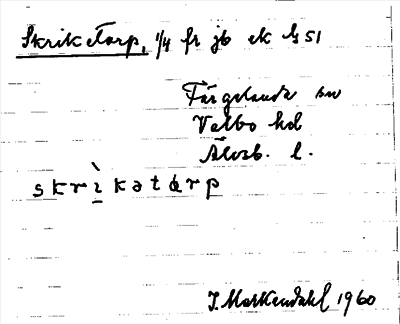 Skriketorp, 1/4 fr jb ek bl 51
Färgelanda sn
Valbo hd
Älvsb. l.
skrì̱katårp
J. Markendahl 1960